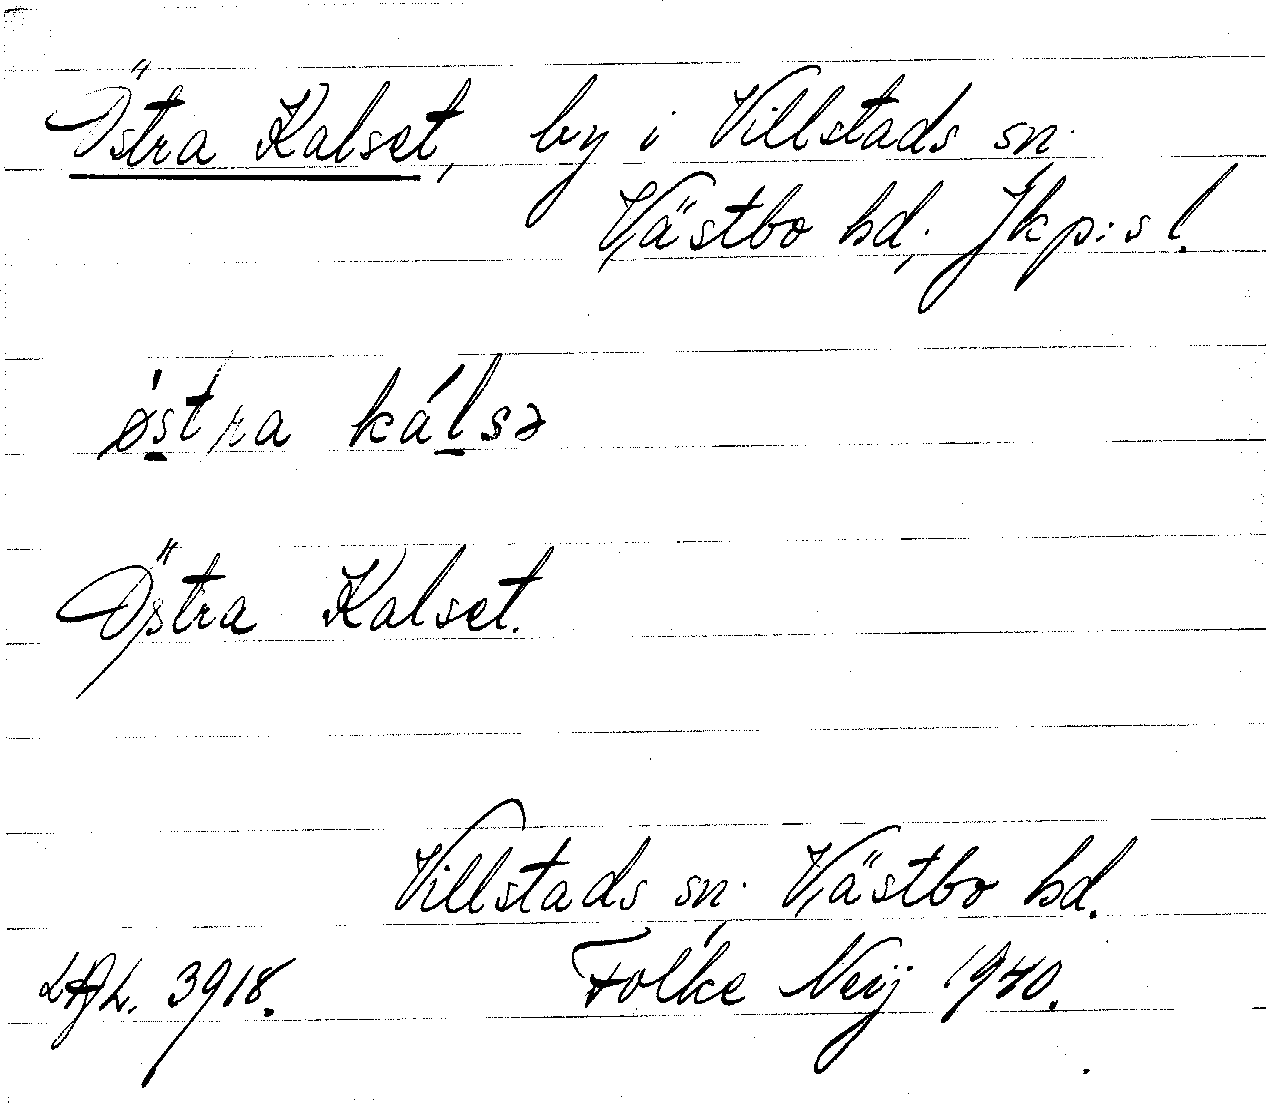 Östra Kalset, by i Villstads sn.
Västbo hd; Jkp:s l.
ǿs̲tra kál̲sə
Östra Kalset.
Villstads sn; Västbo hd.
3918. Folke Neij 1940.